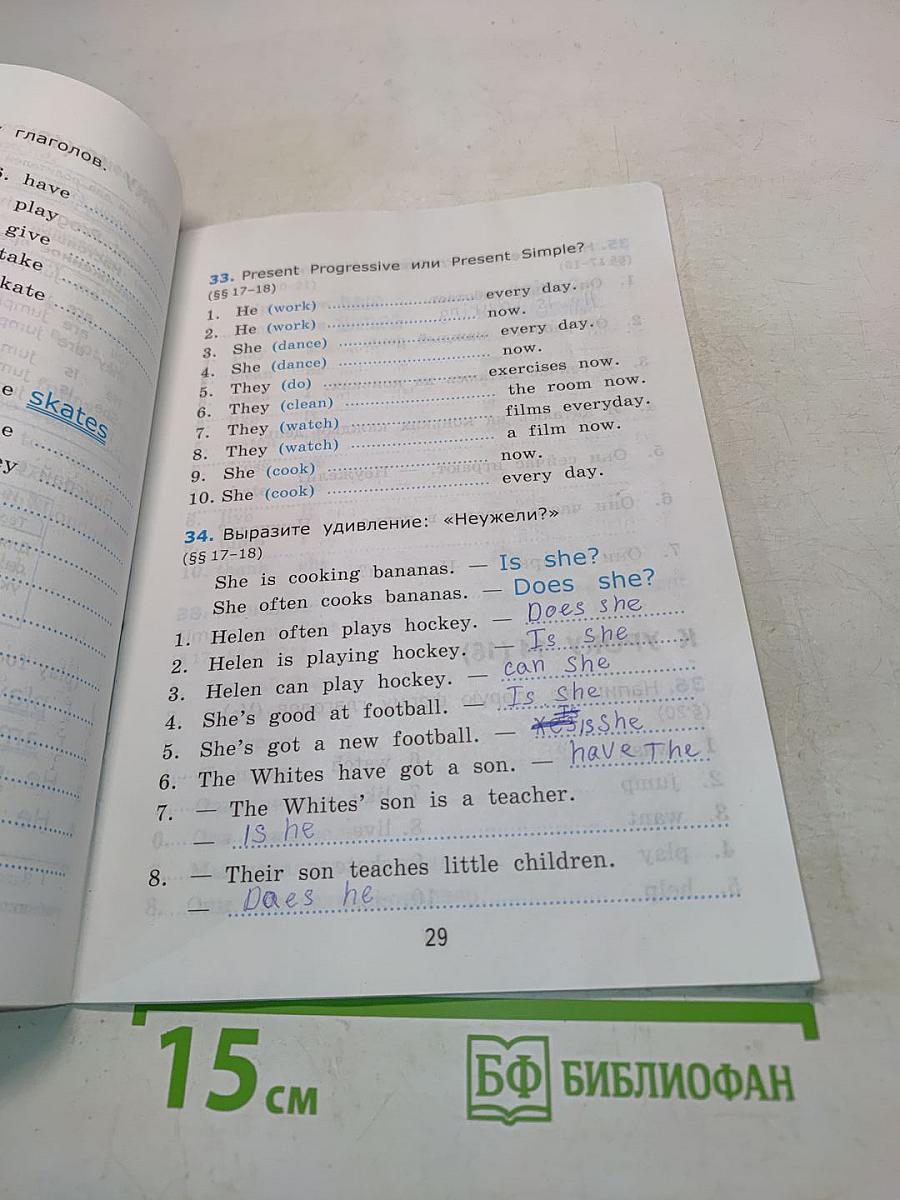 глаголов.
have
play
give
take
skate
skates
33. Present Progressive или Present Simple?
(§§ 17–18)
1. He (work) every day.
2. He (work) now.
3. She (dance) every day.
4. She (dance) now.
5. They (do) exercises now.
6. They (clean) the room now.
7. They (watch) films everyday.
8. They (watch) a film now.
9. She (cook) now.
10. She (cook) every day.
34. Выразите удивление: «Неужели?»
(§§ 17–18)
She is cooking bananas. — Is she?
She often cooks bananas. — Does she?
1. Helen often plays hockey. — Does she
2. Helen is playing hockey. — Is she
3. Helen can play hockey. — can she
4. She's good at football. — Is she
5. She's got a new football. — Is she
6. The Whites have got a son. — have The
7. — The Whites' son is a teacher.
— Is he
8. — Their son teaches little children.
— Does he
29
15 см
БФ БИБЛИОФАН